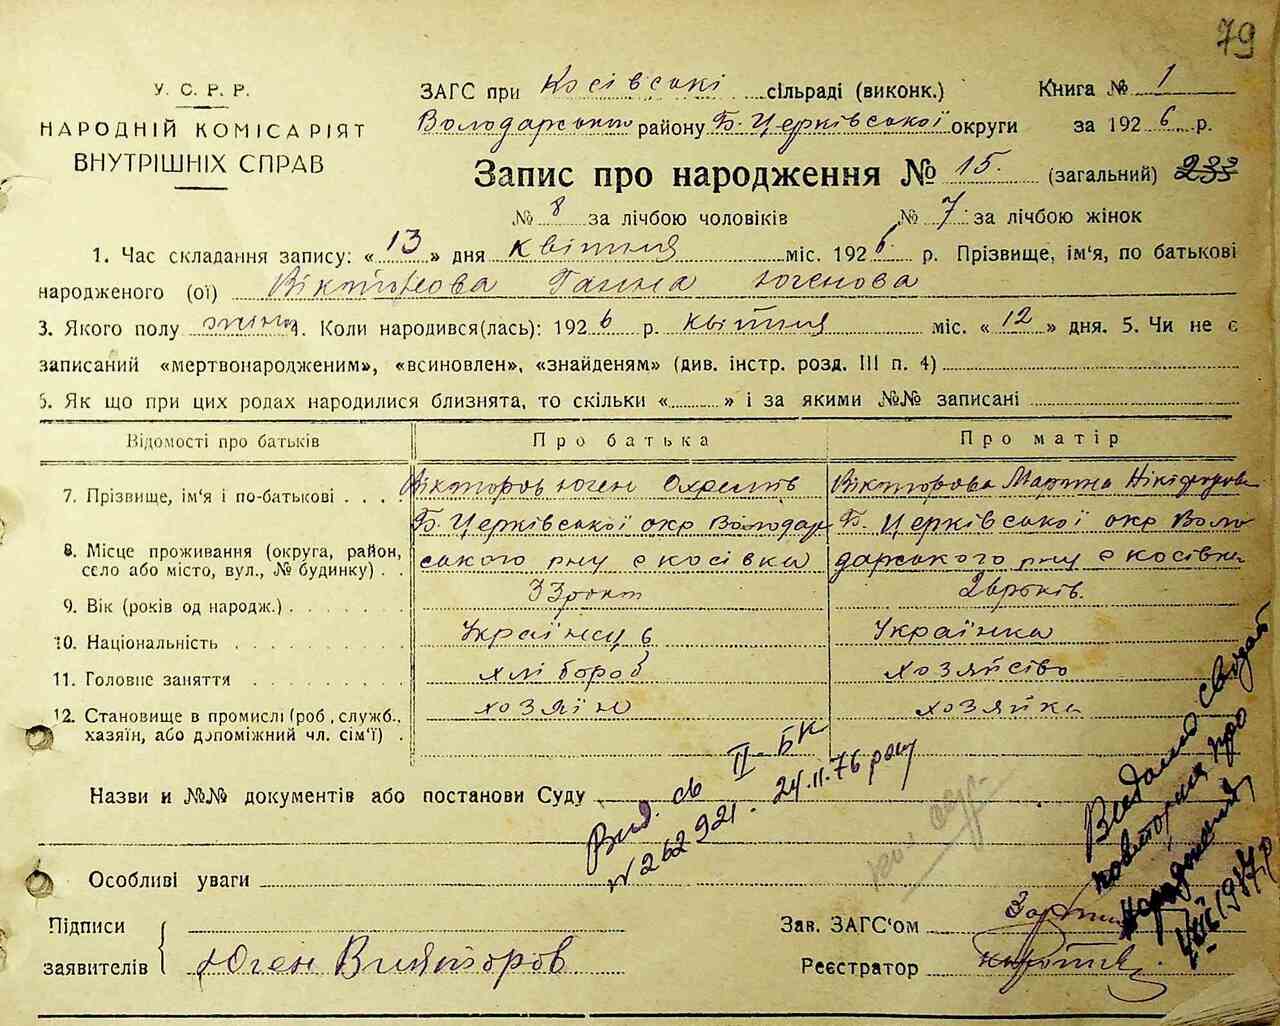 79
У. С. Р. Р.
НАРОДНІЙ КОМІСАРІЯТ
ВНУТРІШНІХ СПРАВ
ЗАГС при Косівські сільраді (виконк.) Книга № 1
Володарськ району Б-Церківської округи за 1926 р.
Запис про народження № 15. (загальний) 233
№ 8 за лічбою чоловіків № 7 за лічбою жінок
1. Час складання запису: «13» дня квітня міс. 1926 р. Прізвище, ім'я, по батькові
народженого (ої) Вікторова Ганна Югенова
3. Якого полу жіноч 4. Коли народився(лась): 1926 р. квітня міс. «12» дня. 5. Чи не є
записаний «мертвонародженим», «всиновлен», «знайденям» (див. інстр. розд. III п. 4)
6. Як що при цих родах народилися близнята, то скільки « » і за якими №№ записані
Відомості про батьків Про батька Про матір
7. Прізвище, ім'я і по-батькові . . . Вікторов Юген Охремів Вікторова Марина Нікіфорова
Б. Церківської окр Володар Б. Церківської окр Воло
8. Місце проживання (округа, район, село або місто, вул., № будинку) . . ського рну с косівка дарського рну с косівка
9. Вік (років од народж.) 33 рокт 26 років.
10. Національність Українець Українка
11. Головне заняття хлібороб хозяйство
12. Становище в промислі (роб., служб., хазяїн, або допоміжний чл. сім'ї) . хозяїн хозяйка
Назви и №№ документів або постанови Суду
Вид. св II-БК
№ 262921. 24.II.76 року
Особливі уваги
Видано свідоц
повторно про
народження
1987р
Підписи заявителів Юген Вікторов
Зав. ЗАГС'ом
Реєстратор